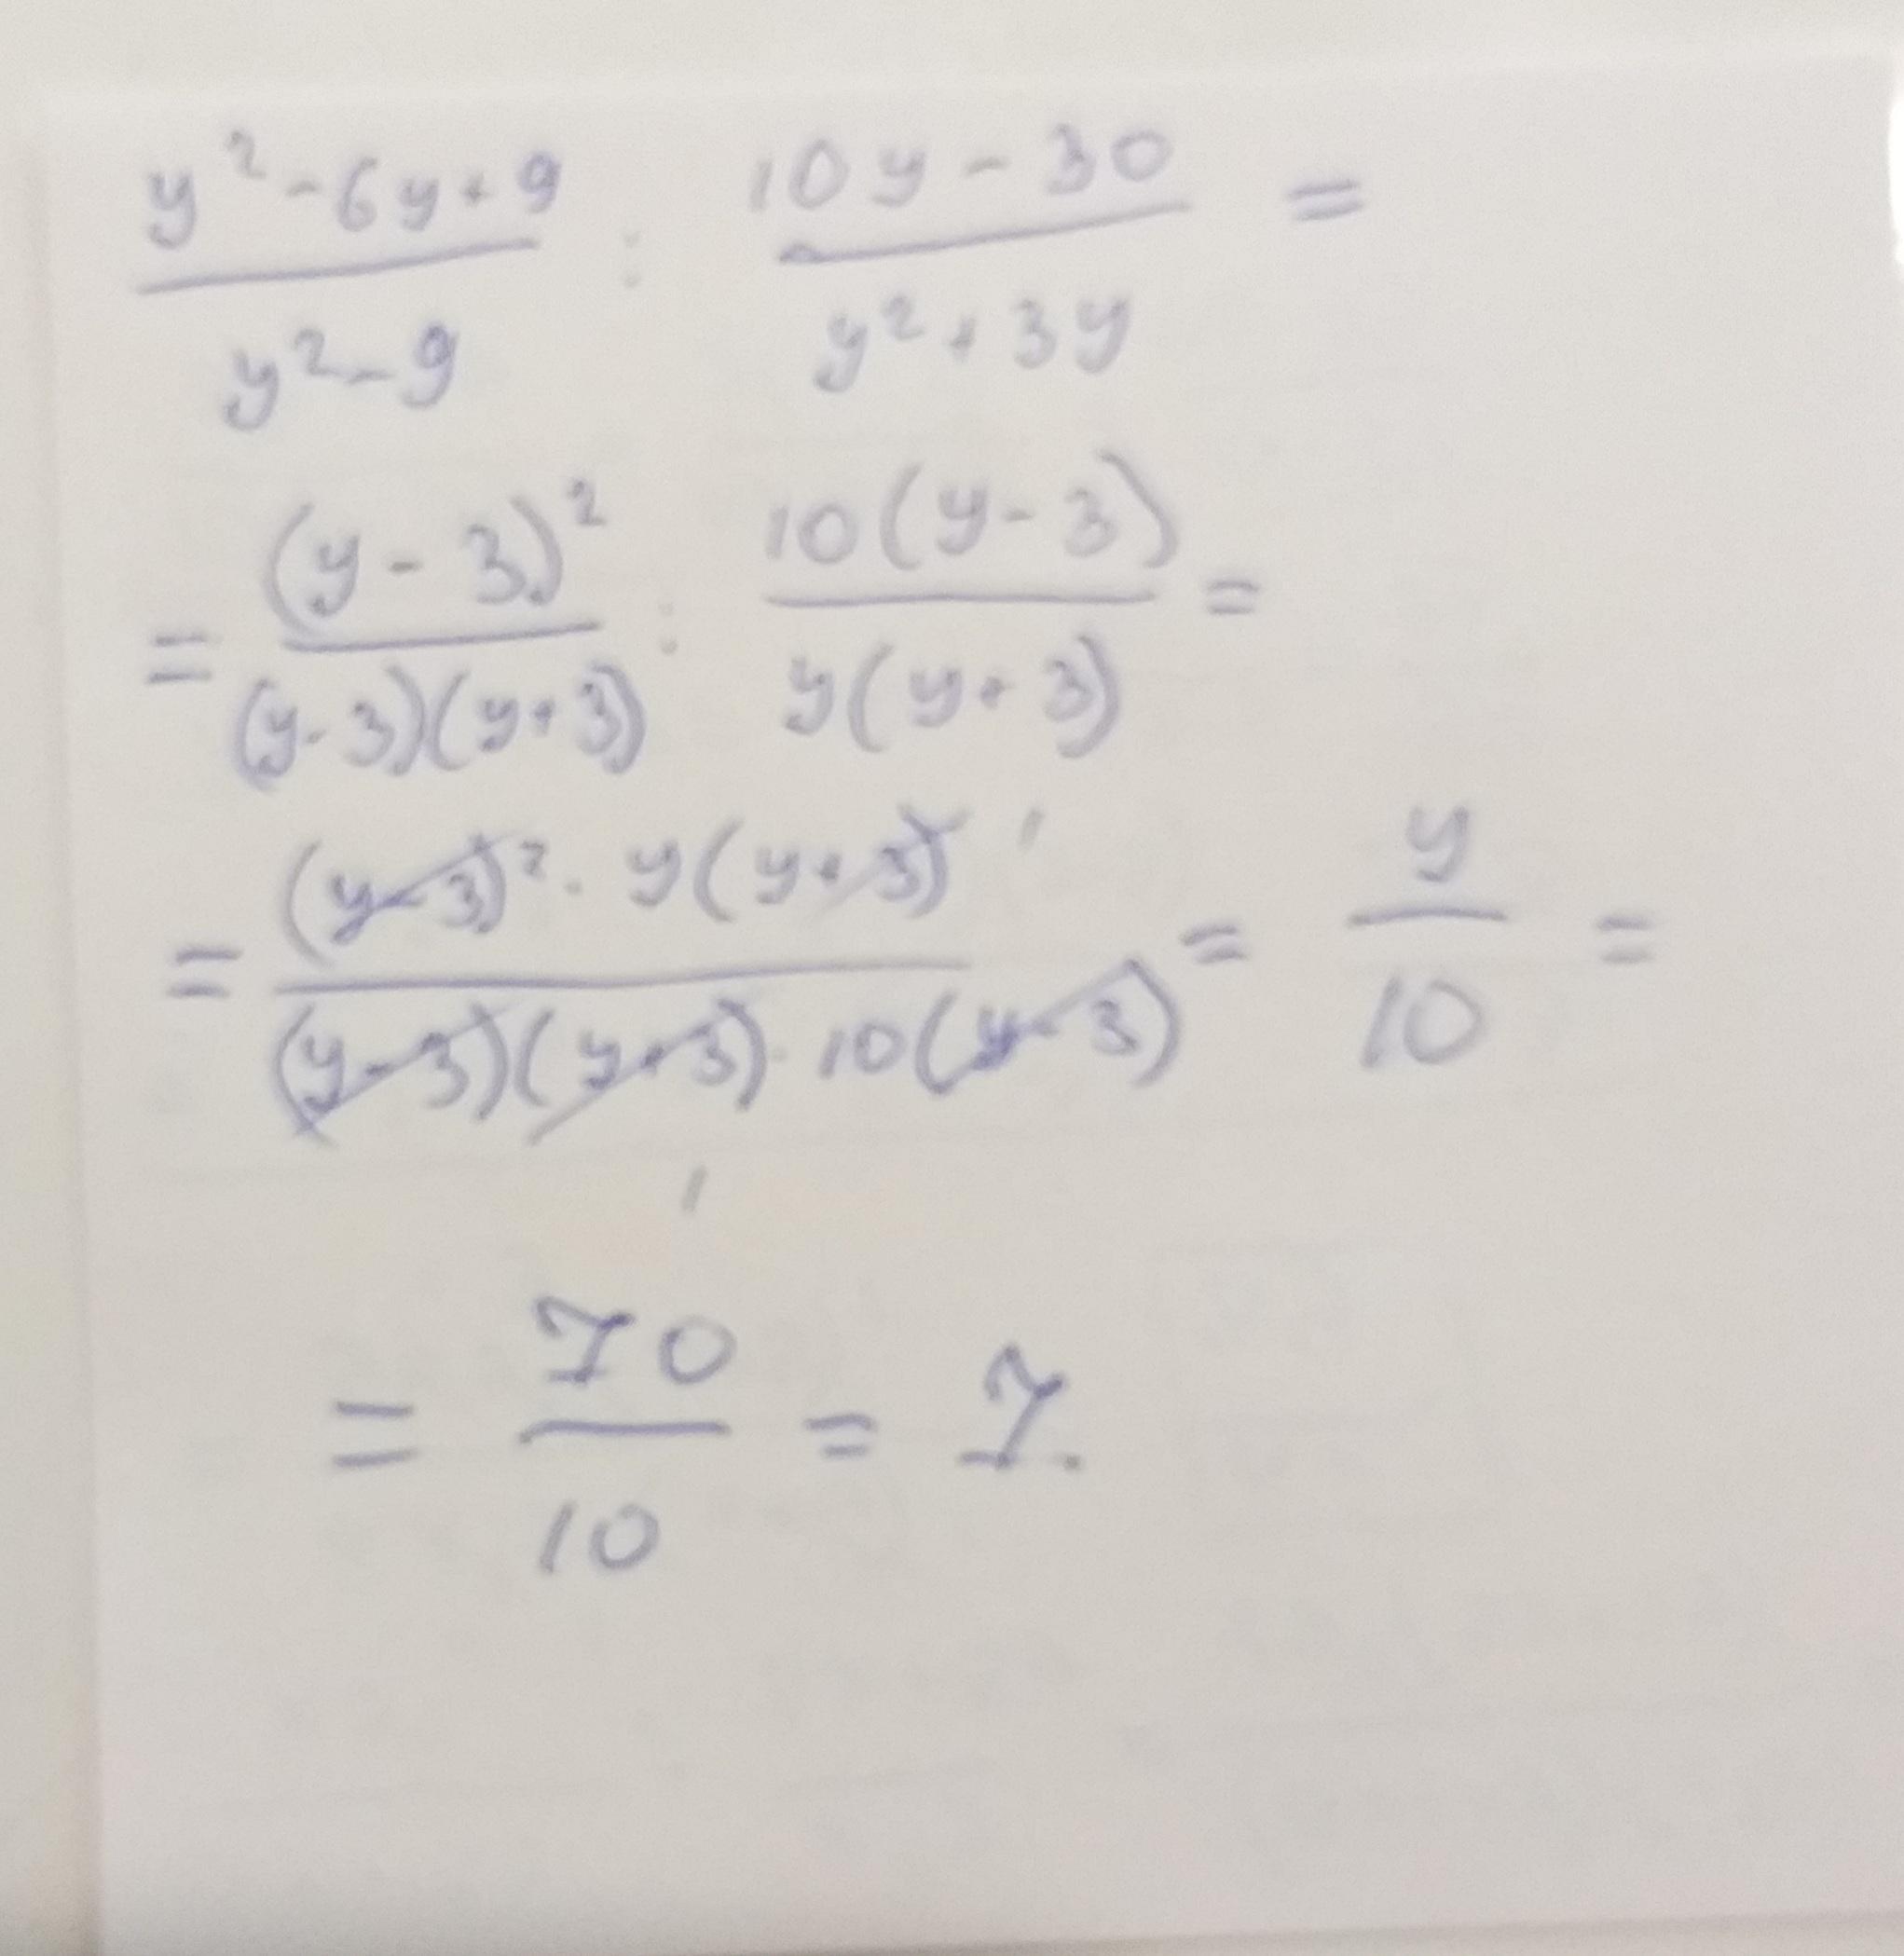 (y² - 6y + 9)/(y² - 9) : (10y - 30)/(y² + 3y) =
= (y - 3)²/((y - 3)(y + 3)) : 10(y - 3)/(y(y + 3)) =
= ((y - 3)² · y(y + 3))/((y - 3)(y + 3) · 10(y - 3)) = y/10 =
= 70/10 = 7.